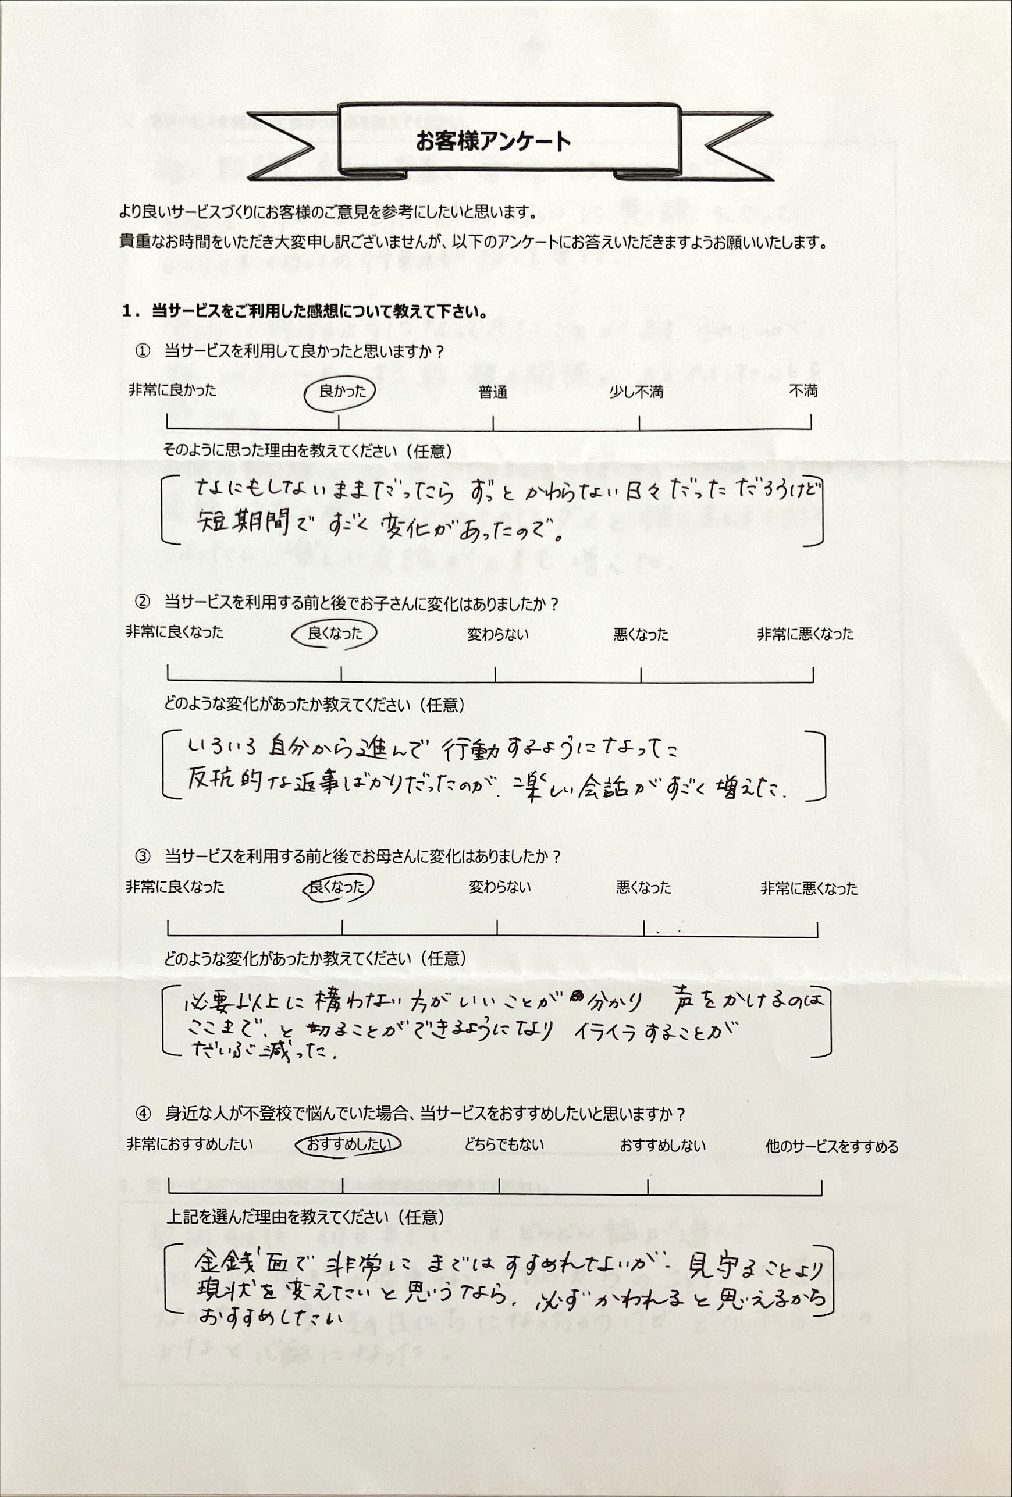 お客様アンケート
より良いサービスづくりにお客様のご意見を参考にしたいと思います。
貴重なお時間をいただき大変申し訳ございませんが、以下のアンケートにお答えいただきますようお願いいたします。
1. 当サービスをご利用した感想について教えて下さい。
① 当サービスを利用して良かったと思いますか？
非常に良かった 良かった 普通 少し不満 不満
そのように思った理由を教えてください（任意）
なにもしないままだったら ずっと かわらない日々だった だろうけど
短期間で すごく 変化があったので。
② 当サービスを利用する前と後でお子さんに変化はありましたか？
非常に良くなった 良くなった 変わらない 悪くなった 非常に悪くなった
どのような変化があったか教えてください（任意）
いろいろ 自分から進んで 行動するようになって
反抗的な返事ばかりだったのが、楽しい会話がすごく増えた。
③ 当サービスを利用する前と後でお母さんに変化はありましたか？
非常に良くなった 良くなった 変わらない 悪くなった 非常に悪くなった
どのような変化があったか教えてください（任意）
必要以上に構わない方がいいことが分かり 声をかけるのは
ここまで、と切ることができるようになり イライラすることが
だいぶ減った。
④ 身近な人が不登校で悩んでいた場合、当サービスをおすすめしたいと思いますか？
非常におすすめしたい おすすめしたい どちらでもない おすすめしない 他のサービスをすすめる
上記を選んだ理由を教えてください（任意）
金銭面で 非常に までは すすめれないが、見守ることより
現状を変えたいと思うなら、必ずかわれると思えるから
おすすめしたい